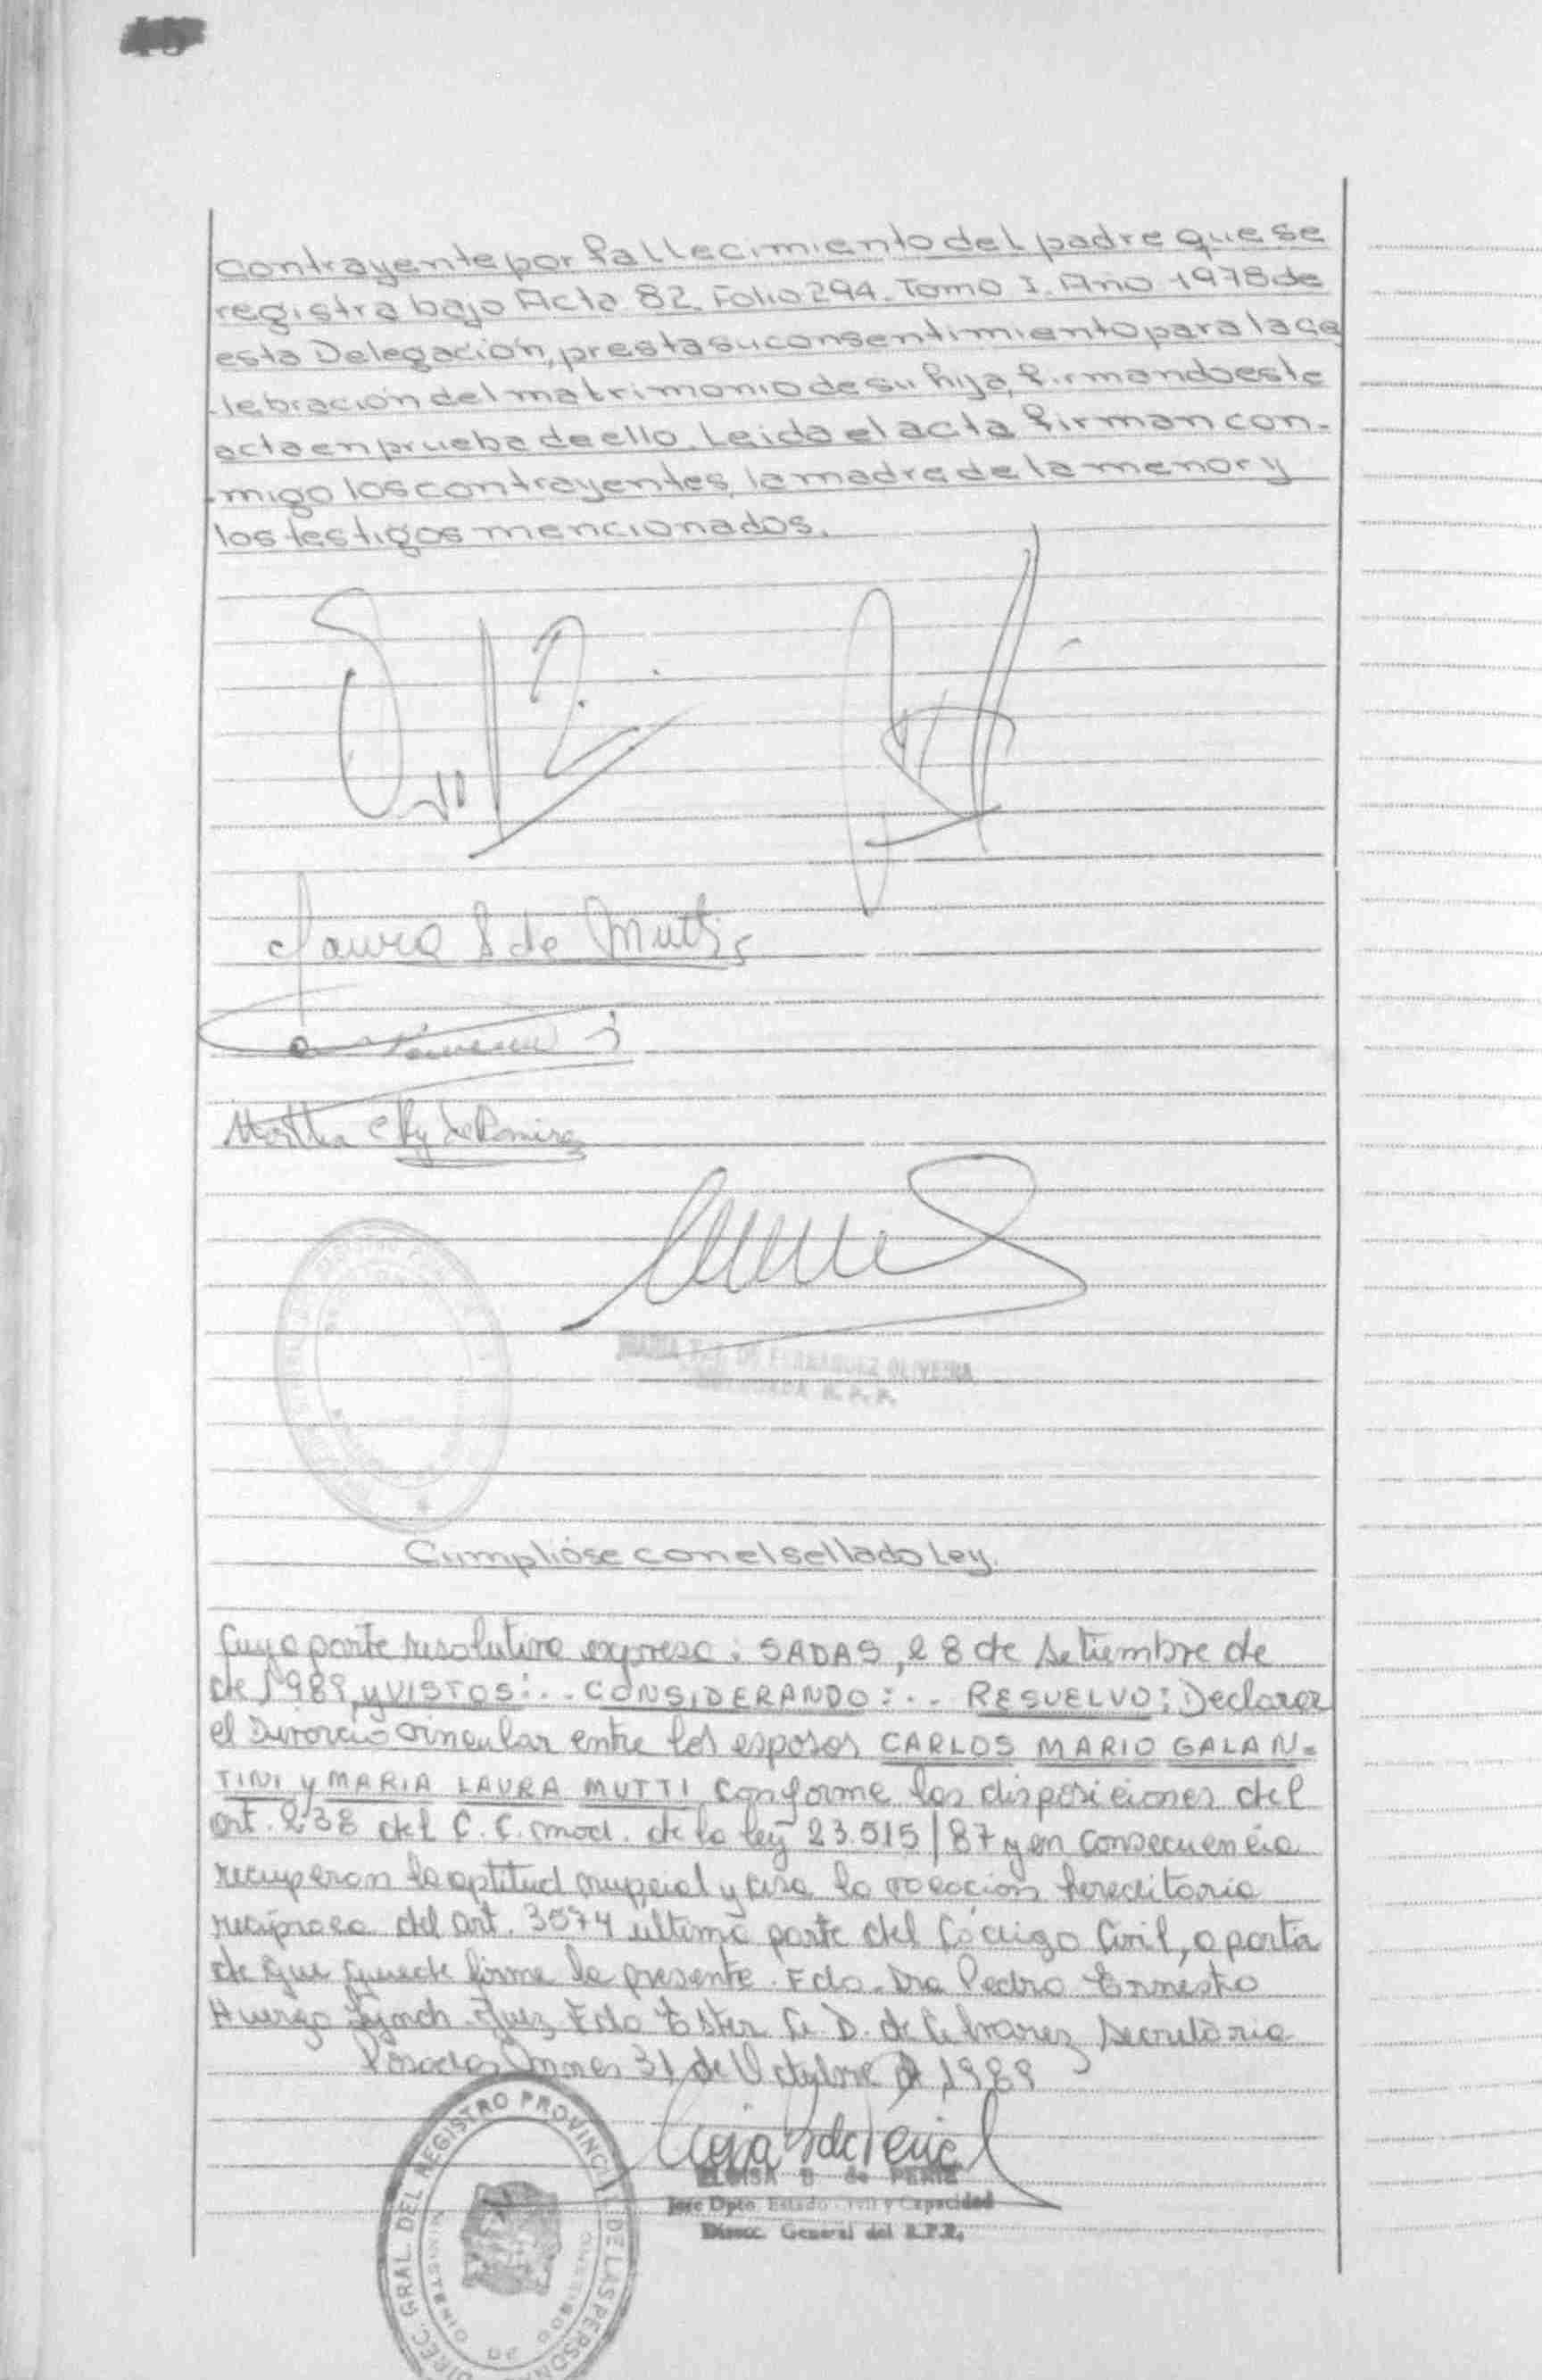 15
contrayente por fallecimiento del padre que se
registra bajo Acta 82. Folio 294. Tomo I. Año 1978 de
esta Delegación, presta su consentimiento para la ce
lebración del matrimonio de su hija, firmando este
acta en prueba de ello. Leida el acta firman con-
migo los contrayentes, la madre de la menor y
los testigos mencionados.
Laura S de Mutti
Martha de Ramirez
MARIA DE OLIVEIRA
R. P. P.
Cumplióse con el sellado Ley.
Cuya parte resolutiva expresa: SADAS, 28 de Setiembre de
de 1989, y VISTOS:.. CONSIDERANDO:.. RESUELVO: Declarar
el Divorcio vincular entre los esposos CARLOS MARIO GALAN-
TINI y MARIA LAURA MUTTI, conforme las disposiciones del
art. 238 del C.C. mod. de la ley 23.515/87 y en consecuencia
recuperan la aptitud nupcial y cesa la vocación hereditaria
recíproca del art. 3574 última parte del Código Civil, a partir
de que quede firme la presente. Fdo. Dra Pedro Ernesto
Huergo Lynch. Juez Fdo Ester C. D. de Secretaria
Posadas, Mnes 31 de Octubre de 1989
ELOISA B de PERIE
Jefe Dpto. Estado Civil y Capacidad
Direcc. General del R.P.P.
DIREC. GRAL. DEL REGISTRO PROVINCIAL DE LAS PERSONAS
MINISTERIO DE GOBIERNO